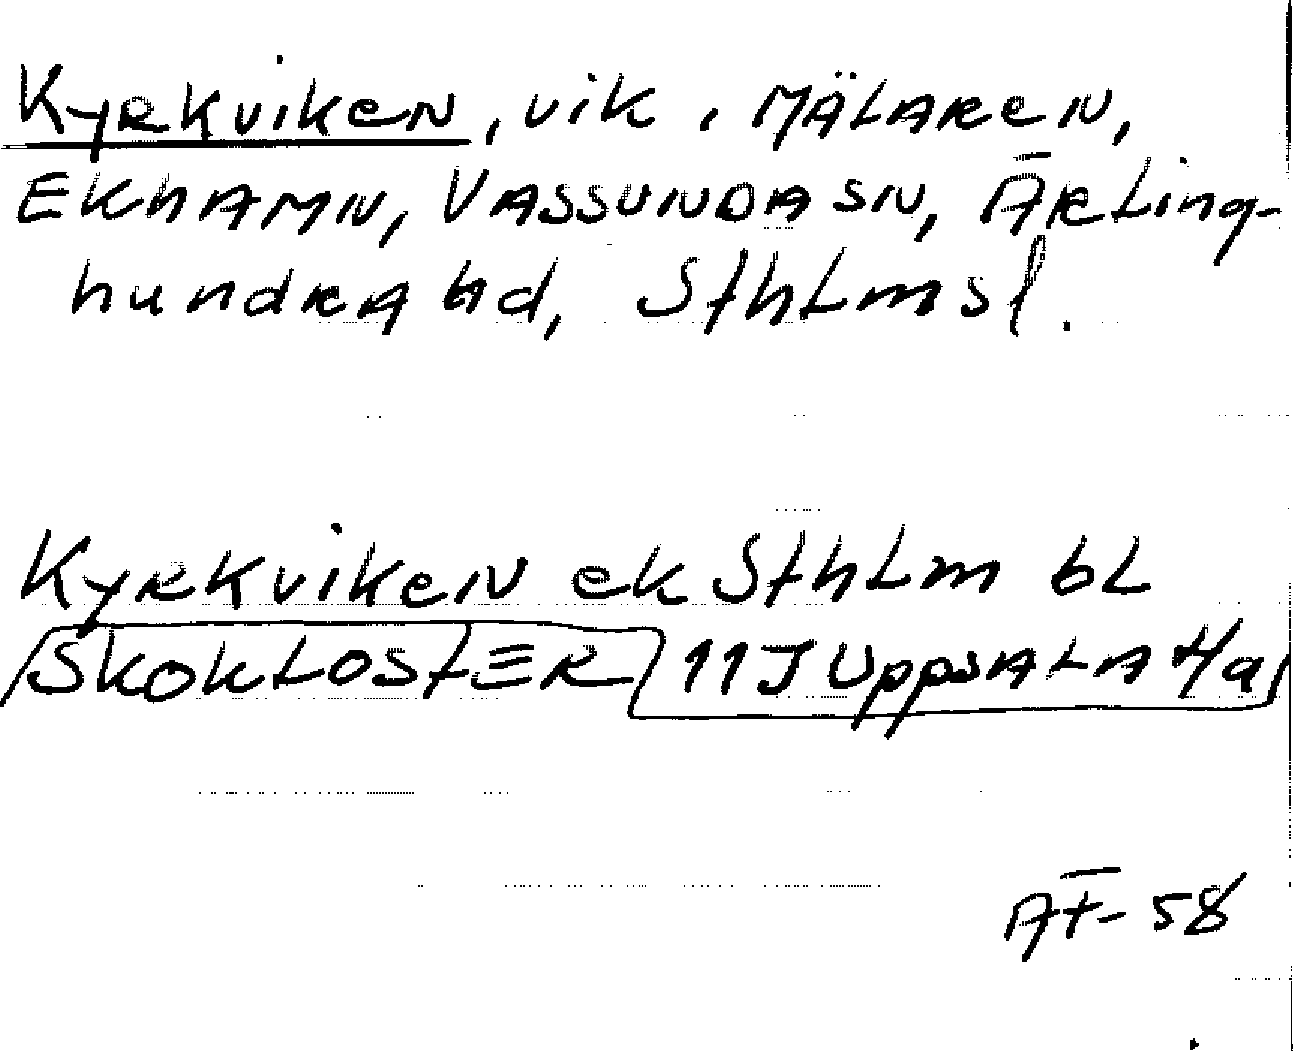 Kyrkviken, vik i Mälaren,
Ekhamn, Vassunda sn, Ärling-
hundra hd, Sthlms l.
Kyrkviken ek Sthlm bl
SKOKLOSTER 11J Uppsala 4/a
AF-58